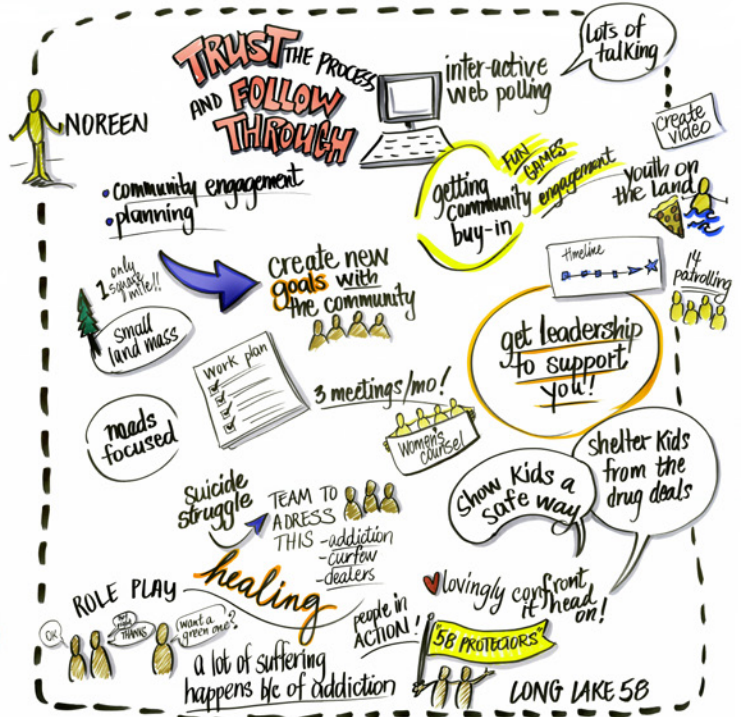 TRUST THE PROCESS
AND FOLLOW
THROUGH
NOREEN
inter-active
web polling
Lots of
talking
create
video
• community engagement
• planning
getting
community
buy-in
FUN
GAMES
engagement
youth on
the land
only
1 square
mile!!
small
land mass
create new
goals with
the community
timeline
14
patrolling
get leadership
to support
you!
work plan
3 meetings/mo!
Women's
counsel
needs
focused
suicide
struggle
TEAM TO
ADRESS
THIS -addiction
-curfew
-dealers
healing
Show Kids a
safe way
shelter Kids
from the
drug deals
ROLE PLAY
OK
THANKS
want a
green one?
people in
ACTION!
lovingly confront
it head
on!
"58 PROTECTORS"
a lot of suffering
happens b/c of addiction
LONG LAKE 58